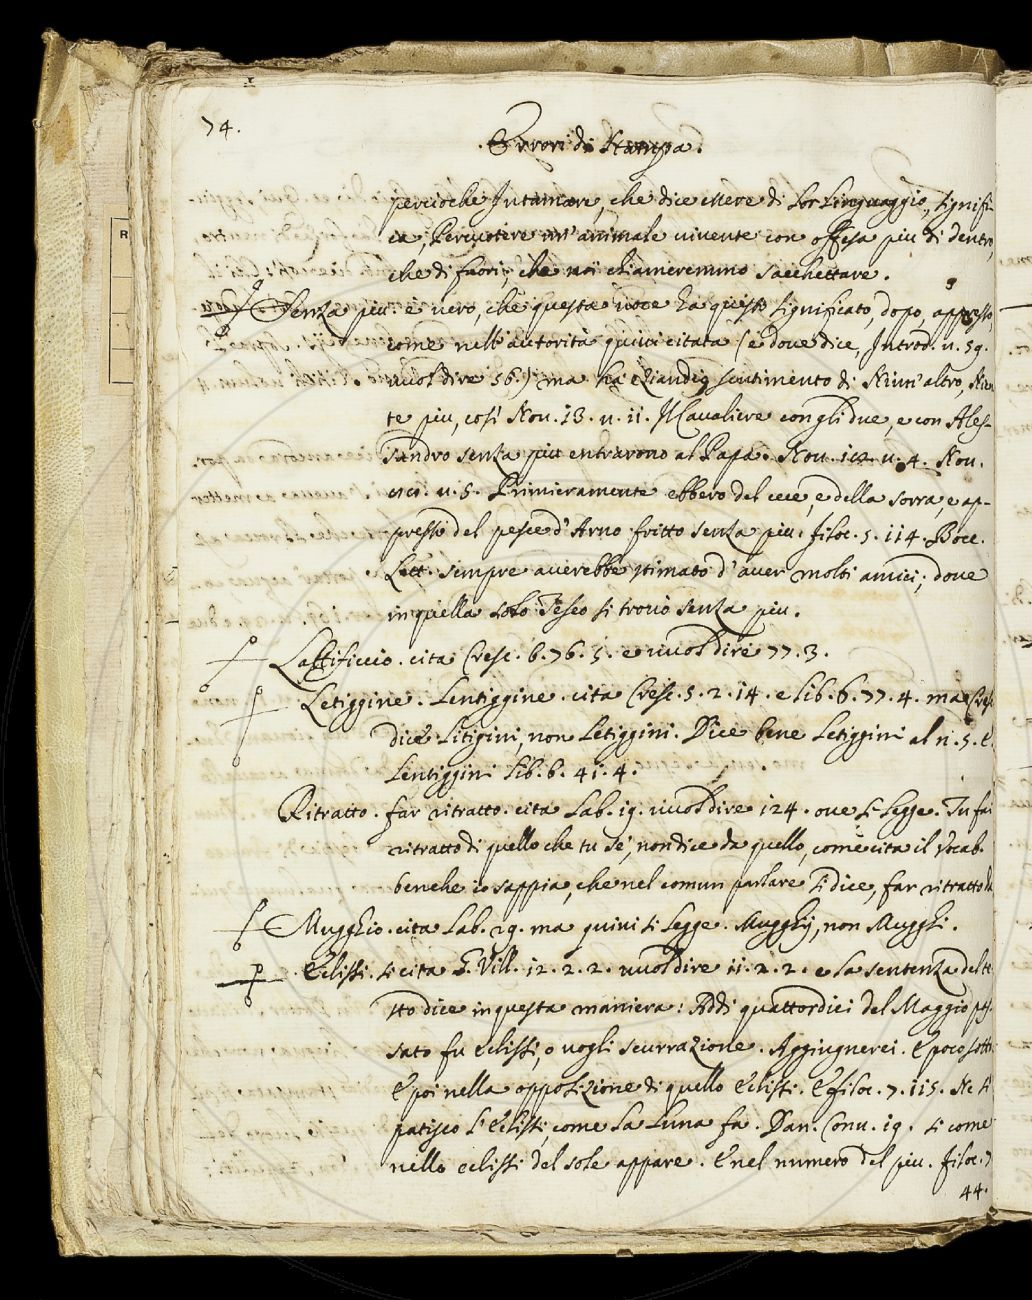 74.
Errori di Stampa.
percioche Intamare, che dice essere di Lor Linguaggio, signifi-
ca, Percuotere un'animale vivente con offesa piu di dentro,
che di fuori, che noi chiameremmo sacchettare.
Senza piu. è vero, che questa uoce ha questo significato, dopo, appresso,
come nell'autorità quiui citata (e doue dice, Introd. n. 59.
uuol dire 56.) ma ha etiandio sentimento di Niun'altro, Nien-
te piu, così Nou. 13. n. 11. Il caualiere con gli due, e con Ales-
sandro senza piu entrarono al Papa. Nou. n. 4. Nou.
n. 5. Primieramente ebbero del cece, e della sorra, e ap-
presso del pesce d'Arno fritto senza piu. Filoc. 5. 114. Bocc.
Lett. sempre auerebbe stimato d'auer molti amici; doue
in quella solo Teseo si trouò senza piu.
Lastificcio. cita Cresc. 6. 76. 3. e uuol dire 77. 3.
Letiggine. Lentiggine. cita Cresc. 5. 2. 14. e lib. 6. 77. 4. ma Cresc.
dice Litigini, non Letiggini. Dice bene Letiggini al n. 5. E
Lentiggini Lib. 6. 41. 4.
Ritratto. far ritratto. cita Lab. 19. uuol dire 124. oue si Legge. Tu fai
ritratto di quello che tu se', non dice da quello, come cita il Vocab.
benche io sappia, che nel comun parlare si dice, far ritratto da
Mugghio. cita Lab. 29. ma quiui si Legge. Mugghij, non Mugghi.
Eclissi. si cita G. Vill. 12. 2. 2. uuol dire 11. 2. 2. e la sentenza del te-
sto dice in questa maniera: Addi quattordici del Maggio pas-
sato fu eclissi, o uogli scurazione. Aggiugnerei. E poco sotto
E poi nella opposizione di quello Eclissi. E Filoc. 7. 115. Ne si
patisco l'Eclissi, come La Luna fa. Dan. Conu. 19. si come
nello eclissi del sole appare. E nel numero del piu. Filoc. 7
44.